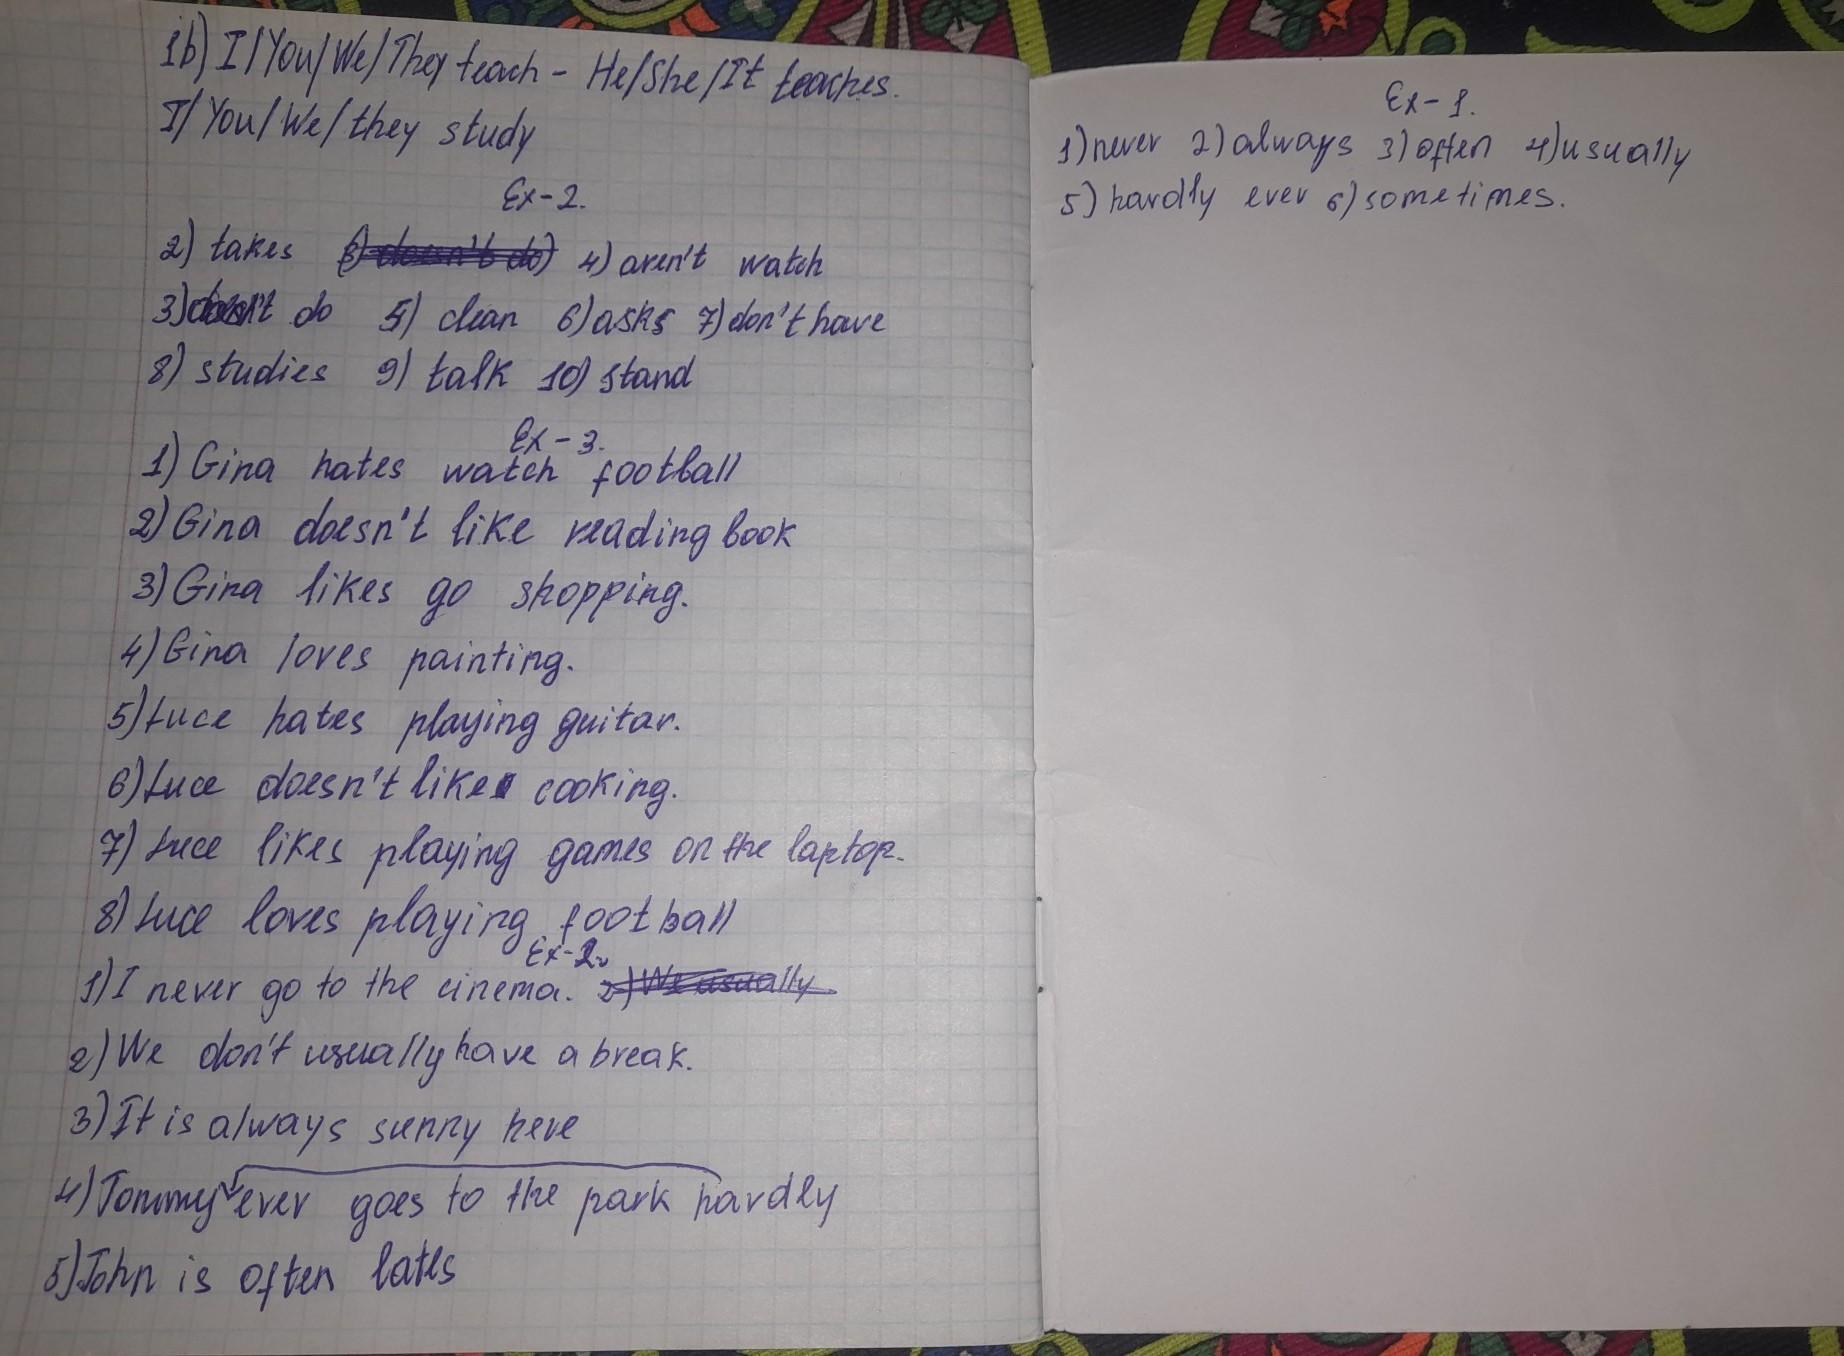 1b) I/You/We/They teach - He/She/It teaches.
I/You/We/they study
Ex-2.
2) takes 3) doesn't do 4) aren't watch
3) doesn't do 5) clean 6) asks 7) don't have
8) studies 9) talk 10) stand
Ex-3.
1) Gina hates watch football
2) Gina doesn't like reading book
3) Gina likes go shopping.
4) Gina loves painting.
5) Luce hates playing guitar.
6) Luce doesn't like cooking.
7) Luce likes playing games on the laptop.
8) Luce loves playing football
Ex-2.
1) I never go to the cinema. 2) We usually
2) We don't usually have a break.
3) It is always sunny here
4) Tommy ever goes to the park hardly
5) John is often lates
Ex-1.
1) never 2) always 3) often 4) usually
5) hardly ever 6) sometimes.